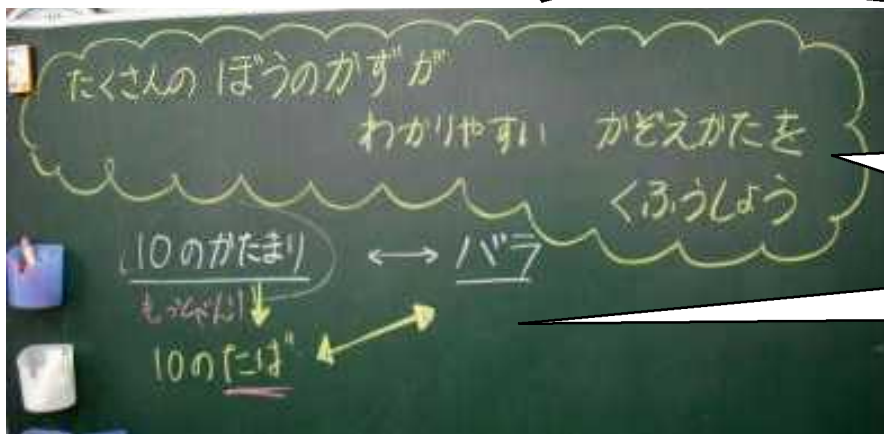 たくさんの ぼうのかずが
わかりやすい かぞえかたを
くふうしよう
10のかたまり ↔ バラ
もっとべんり
10のたば